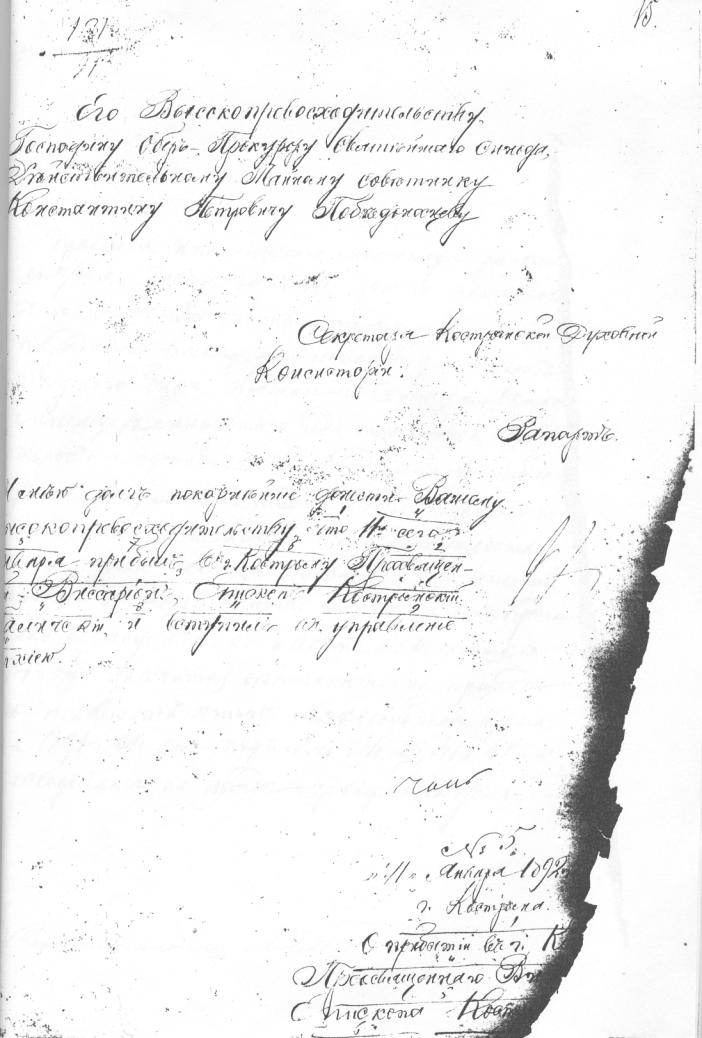 131
15.
Его Высокопревосходительству
Господину Оберъ-Прокурору Святѣйшаго Синода,
Дѣйствительному Тайному Совѣтнику
Константину Петровичу Побѣдоносцеву
Секретаря Костромской Духовной
Консисторіи.
Рапортъ.
Имѣю долгъ покорнѣйше донести Вашему
высокопревосходительству, что 11 сего
января прибылъ въ г. Кострому Преосвящен-
Виссаріонъ, Епископъ Костромской
и вступилъ въ управленіе
епархіею.
№ 5.
"11" Января 1892
г. Кострома.
О прибытіи въ г. Ко
Преосвященнаго Ви
Епископа Кост